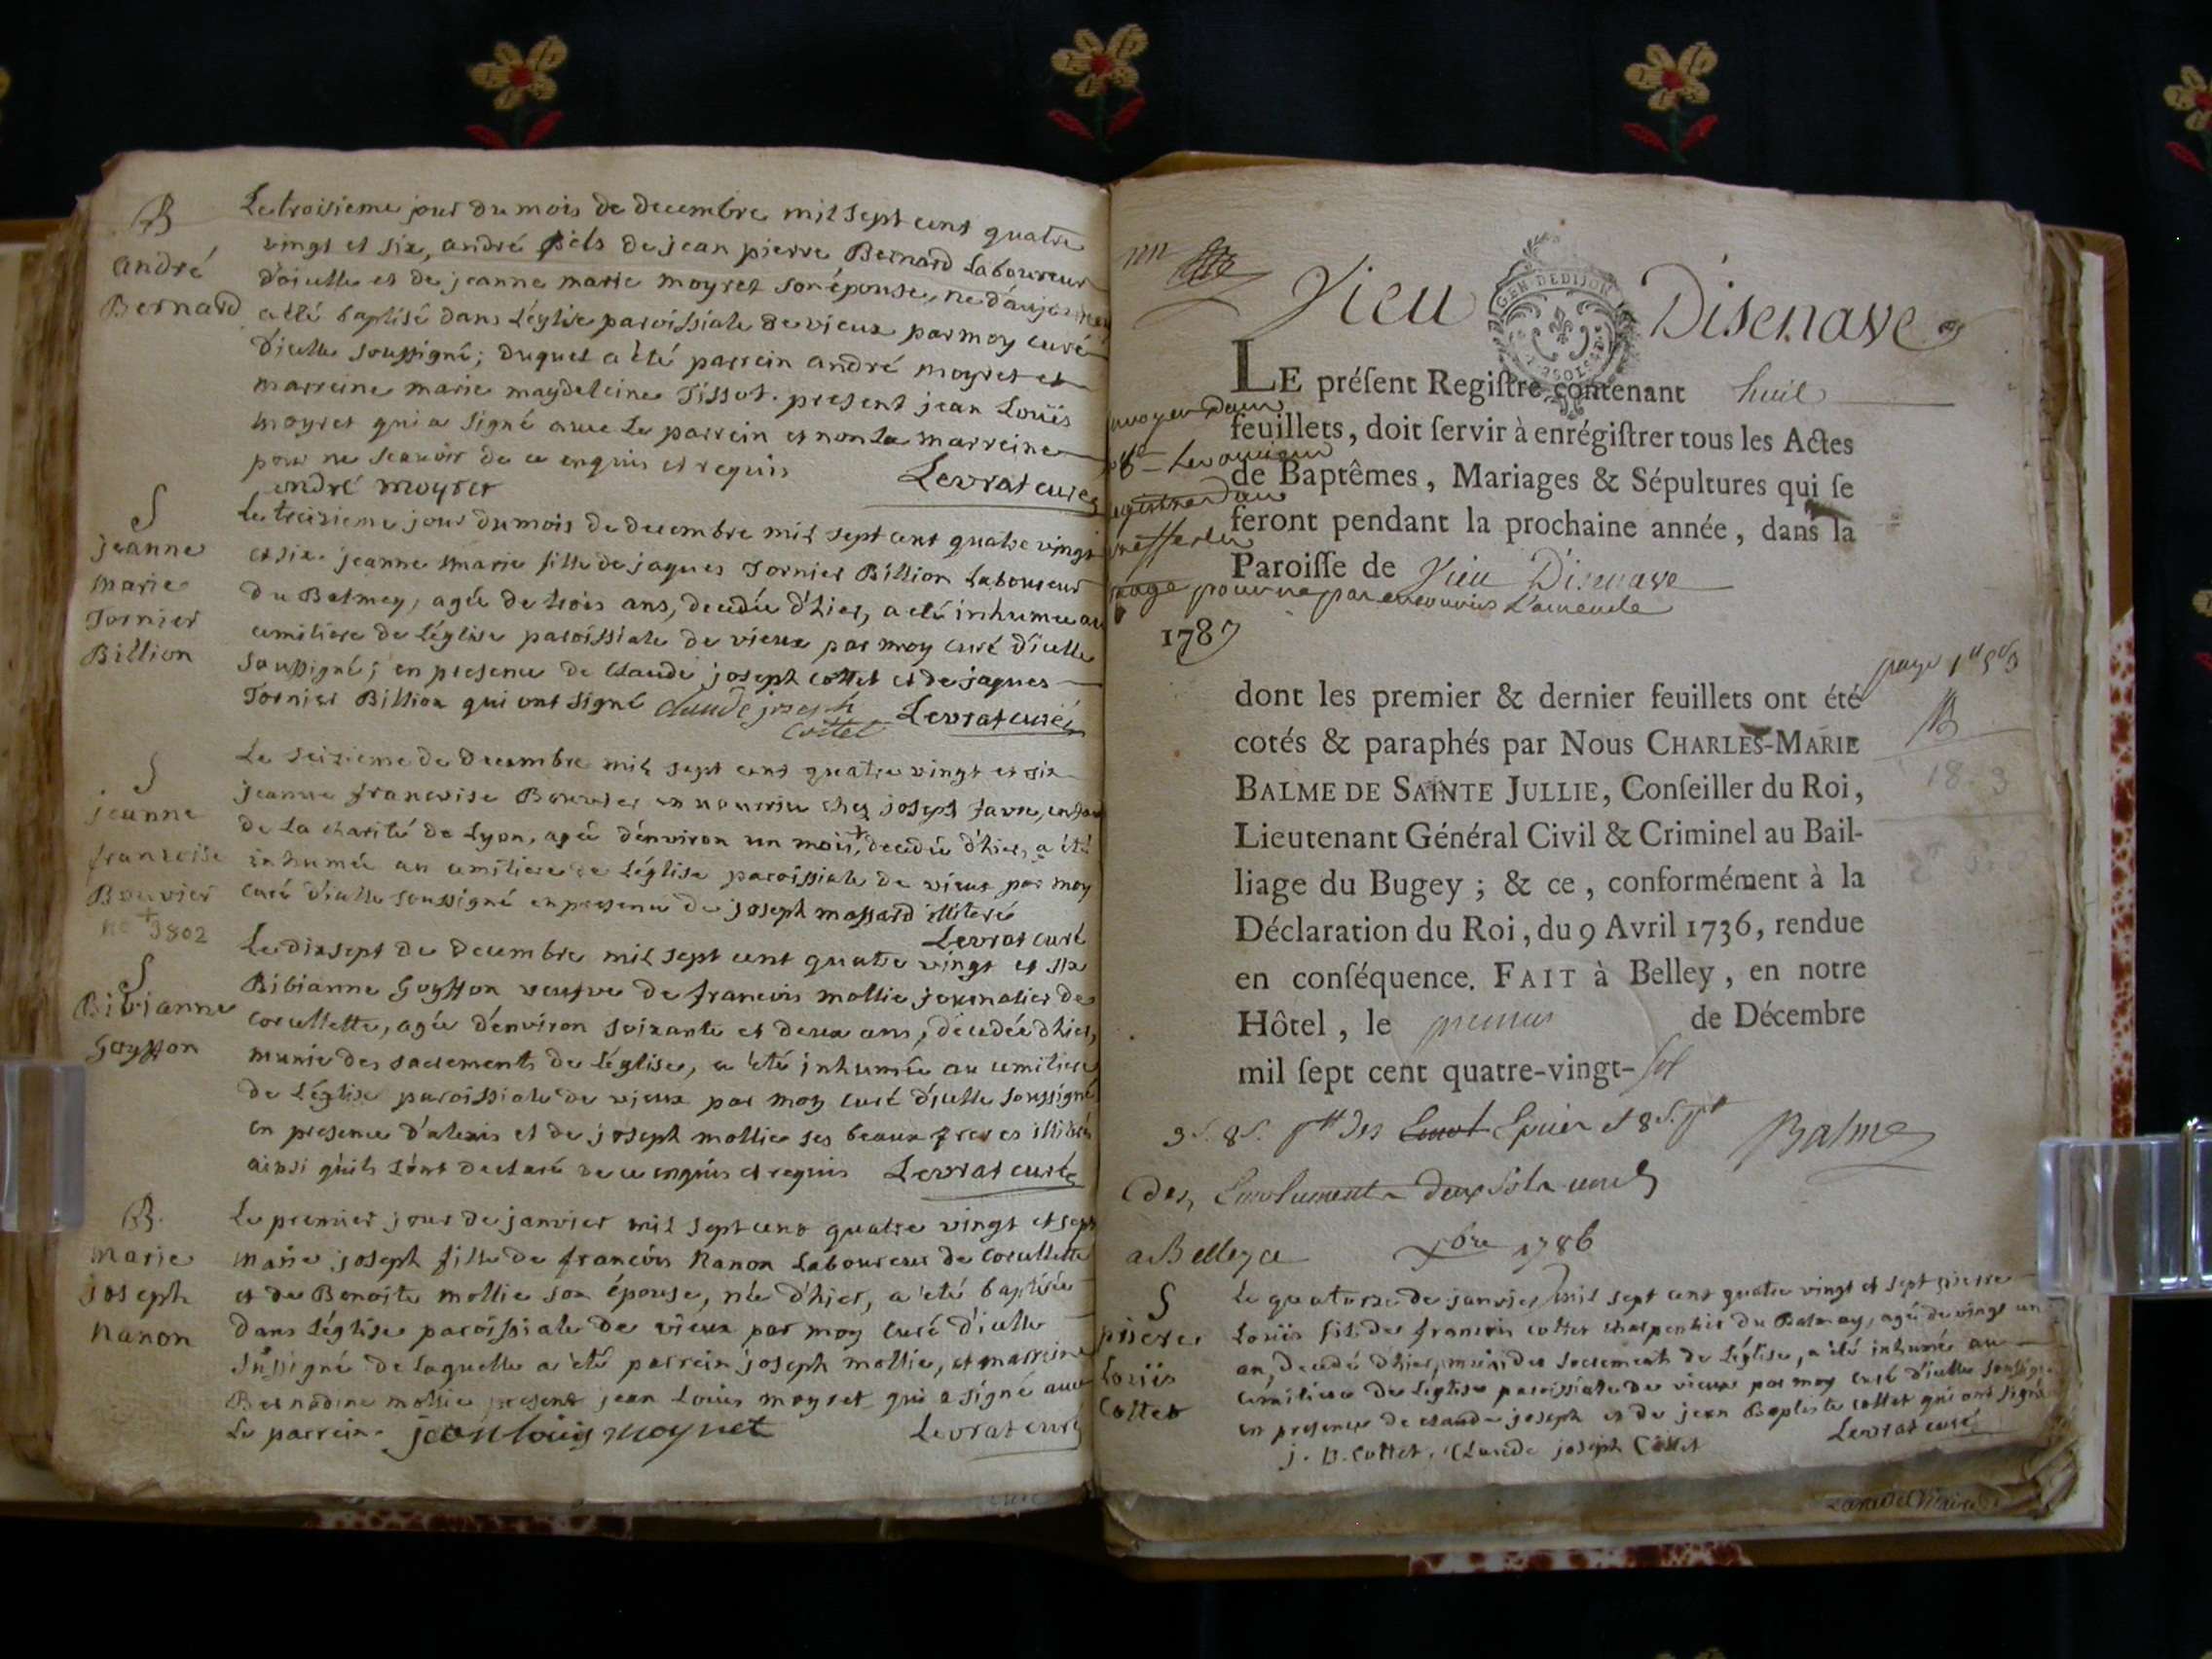 B
André
Bernard
Le troisieme jour du mois de decembre mil sept cent quatre
vingt et six, andré fils de jean pierre Bernard Laboureur
d'icelle et de jeanne marie moyret son épouse, né d'aujourd'huy
a été baptisé dans L'église paroissiale de vieux par moy curé
d'icelle soussigné; duquel a été parrein andré moyret et
marreine marie magdeleine Tissot. present jean Loüis
moyret qui a signé avec Le parrein et non La marreine
pour ne scavoir de ce enquis et requis
andré moyret Levrat curé
S
jeanne
marie
Tornier
Billion
Le treizieme jour du mois de decembre mil sept cent quatre vingt
et six jeanne marie fille de jaques Tornier Billion Laboureur
du Balmey, agée de trois ans, decedée d'hier, a eté inhumée au
cimitiere de L'église paroissiale de vieux par moy curé d'icelle
soussigné; en presence de Claude joseph cottet et de jaques
Tornier Billion qui ont signé claude joseph
cottet Levrat curé
S
jeanne
francoise
Bouvier
no + 3802
Le seizieme de decembre mil sept cent quatre vingt et six
jeanne francoise Bouvier en nourrice chez joseph favre, enfant
de La charité de Lyon, agée d'environ un mois,+ decedée d'hier, a été
inhumée au cimitiere de L'église paroissiale de vieux par moy
curé d'icelle soussigné en presence de joseph massard illiteré
Levrat curé
S
Bibianne
Goyffon
Le dix sept de decembre mil sept cent quatre vingt et six
Bibianne Goyffon veufve de francois mollie journalier de
corcellette, agée d'environ soixante et deux ans, decedée d'hier,
munie des sacrements de L'église, a été inhumée au cimitiere
de L'église paroissiale de vieux par moy curé d'icelle soussigné
en presence d'alexis et de joseph mollie ses beaux freres illiterés
ainsi qu'ils L'ont declaré de ce enquis et requis Levrat curé
B.
Marie
joseph
Nanon
Le premier jour de janvier mil sept cent quatre vingt et sept
Marie joseph fille de francois Nanon Laboureur de corcellette
et de Benoite mollie son épouse, née d'hier, a été baptisée
dans L'église paroissiale de vieux par moy curé d'icelle
sussigné de Laquelle a été parrein joseph mollie, et marreine
Bernadine mollie present jean Loüis moyret qui a signé avec
Le parrein. jean loüis moynet Levrat curé
Vieu Disenave
GEN. DE DIJON
LE préſent Regiſtre contenant huit
feuillets, doit ſervir à enrégiſtrer tous les Actes
de Baptêmes, Mariages & Sépultures qui ſe
feront pendant la prochaine année, dans la
Paroiſſe de Vieu Disenave
page pour ne pas encourir L'amende
1787
dont les premier & dernier feuillets ont été
cotés & paraphés par Nous CHARLES-MARIE
BALME DE SAINTE JULLIE, Conſeiller du Roi,
Lieutenant Général Civil & Criminel au Bail-
liage du Bugey ; & ce, conformément à la
Déclaration du Roi, du 9 Avril 1736, rendue
en conſéquence. FAIT à Belley, en notre
Hôtel, le premier de Décembre
mil ſept cent quatre-vingt-six
Balme
a Belley ce xbre 1786
S
pierre
Loüis
Cottet
Le quatorze de janvier mil sept cent quatre vingt et sept pierre
Loüis fils de francois cottet charpentier du Balmey, agé de vingt un
an, decedé d'hier, muni des sacrement de L'église, a été inhumé au
cimitiere de L'église paroissiale de vieux par moy curé d'icelle soussigné
en presence de claude joseph et de jean Baptiste cottet qui ont signé
j. B. cottet, Claude joseph Cottet Levrat curé